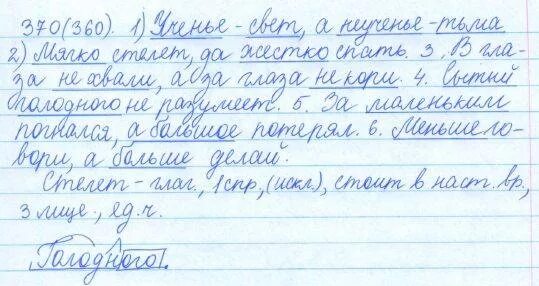 370(360). 1) Ученье - свет, а неученье - тьма
2) Мягко стелет, да жестко спать. 3. В гла-
за не хвали, а за глаза не кори. 4. Сытый
голодного не разумеет. 5. За маленьким
погнался, а большое потерял. 6. Меньше го-
вори, а больше делай.
Стелет - глаг., 1 спр, (искл), стоит в наст. вр.,
3 лице., ед. ч.
Голодного.